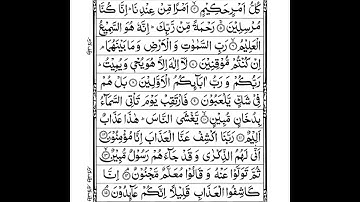 كُلُّ اَمْرٍ حَكِيْمٍ ۙ اَمْرًا مِّنْ عِنْدِنَا ؕ اِنَّا كُنَّا
مُرْسِلِيْنَ ۚ رَحْمَةً مِّنْ رَّبِّكَ ؕ اِنَّهٗ هُوَ السَّمِيْعُ
الْعَلِيْمُ ۙ رَبِّ السَّمٰوٰتِ وَ الْاَرْضِ وَ مَا بَيْنَهُمَا ۘ
اِنْ كُنْتُمْ مُّوْقِنِيْنَ ۞ لَاۤ اِلٰهَ اِلَّا هُوَ يُحْيٖ وَ يُمِيْتُ ؕ
رَبُّكُمْ وَ رَبُّ اٰبَآئِكُمُ الْاَوَّلِيْنَ ۞ بَلْ هُمْ
فِيْ شَكٍّ يَّلْعَبُوْنَ ۞ فَارْتَقِبْ يَوْمَ تَاْتِي السَّمَآءُ
بِدُخَانٍ مُّبِيْنٍ ۙ يَّغْشَى النَّاسَ ؕ هٰذَا عَذَابٌ
اَلِيْمٌ ۞ رَبَّنَا اكْشِفْ عَنَّا الْعَذَابَ اِنَّا مُؤْمِنُوْنَ ۞
اَنّٰى لَهُمُ الذِّكْرٰى وَ قَدْ جَآءَهُمْ رَسُوْلٌ مُّبِيْنٌ ۙ
ثُمَّ تَوَلَّوْا عَنْهُ وَ قَالُوْا مُعَلَّمٌ مَّجْنُوْنٌ ۘ اِنَّا
كَاشِفُوا الْعَذَابِ قَلِيْلًا اِنَّكُمْ عَآئِدُوْنَ ۘ